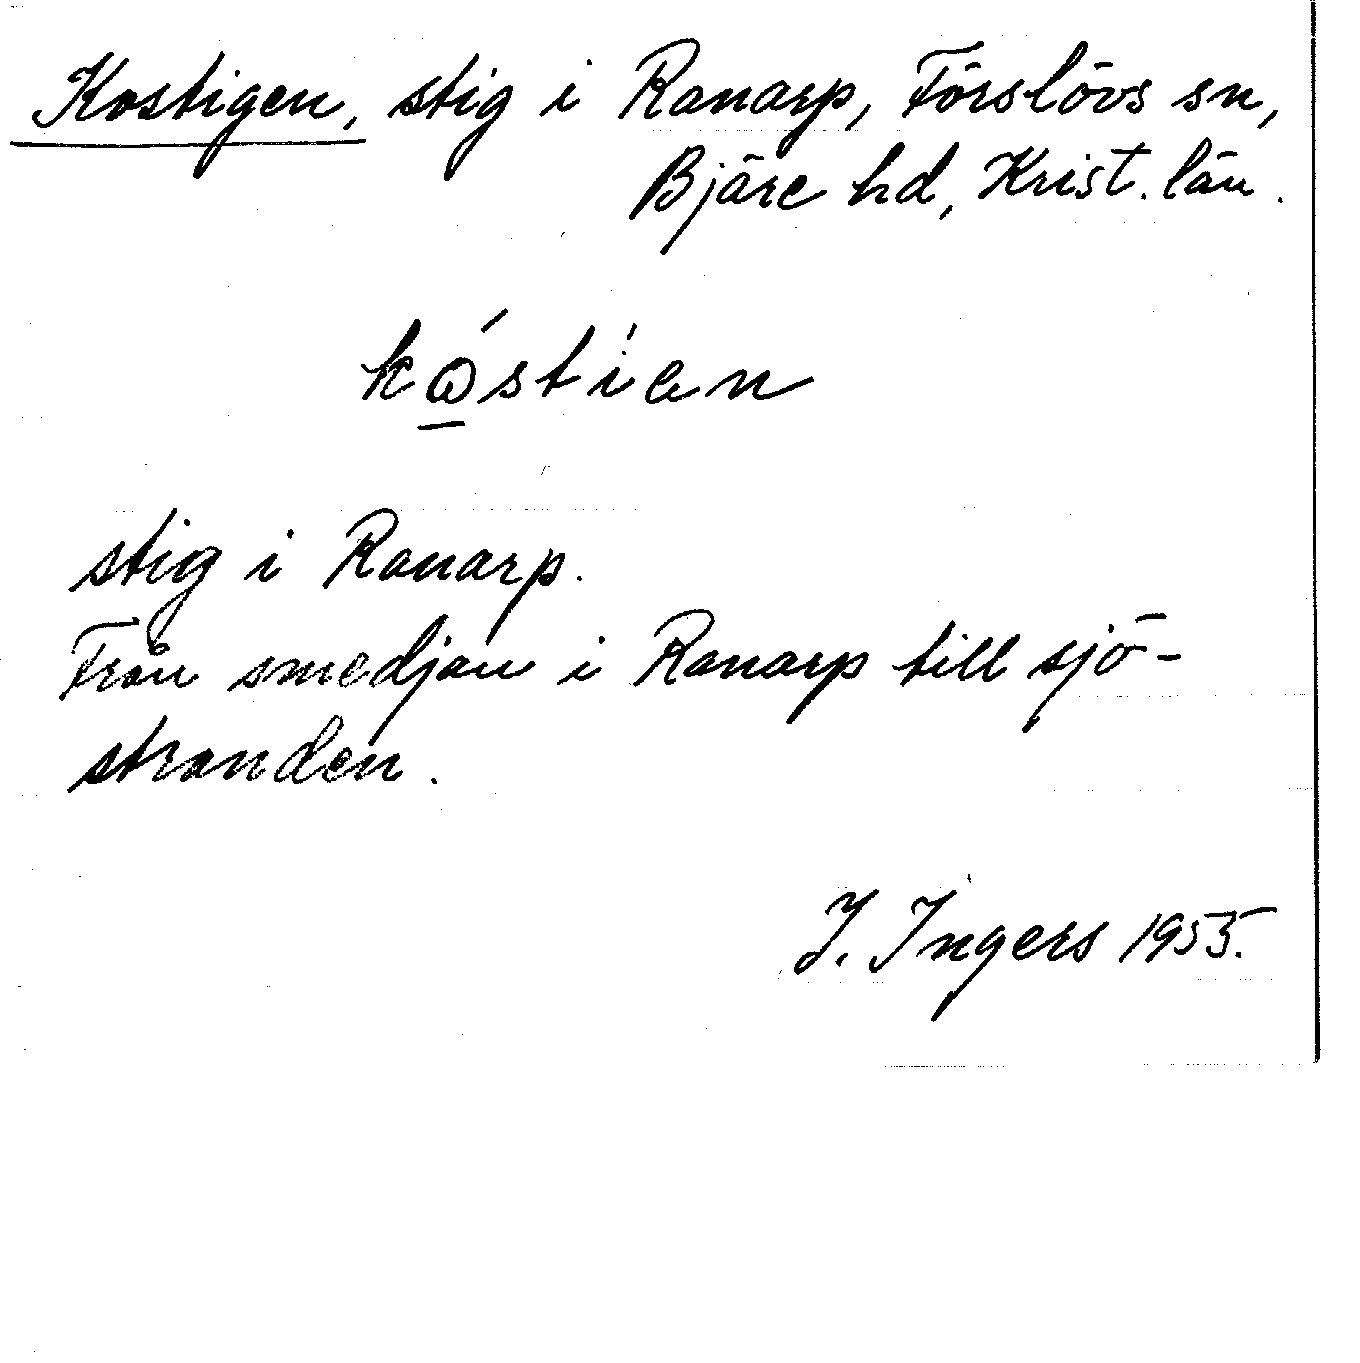 Kostigen, stig i Ranarp, Förslövs sn,
Bjäre hd, Krist. län.
stig i Ranarp.
Från smedjan i Ranarp till sjö-
stranden.
I. Ingers 1955.